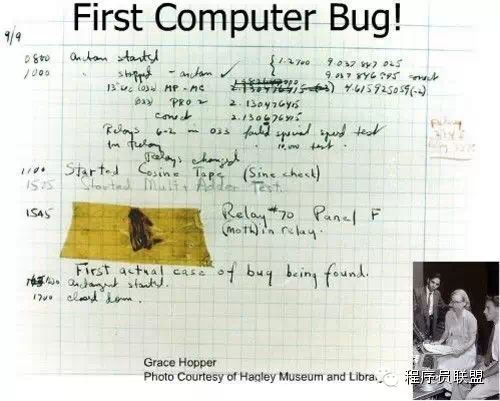 First Computer Bug!
9/9
0800 Antan started
1000 " stopped - antan ✓
{ 1.2700 9.037 847 025
9.037 846 995 correct
13"uc (032) MP - MC 4.615925059(-2)
(033) PRO 2 2.130476415
correct 2.130676415
Relays 6-2 in 033 failed special speed test
in relay " 10.000 test.
Relays changed
1100 Started Cosine Tape (Sine check)
1525 Started Mult + Adder Test.
1545 Relay #70 Panel F
(moth) in relay.
First actual case of bug being found.
antangent started.
1700 closed down.
Relay
Grace Hopper
Photo Courtesy of Hagley Museum and Librar
程序员联盟